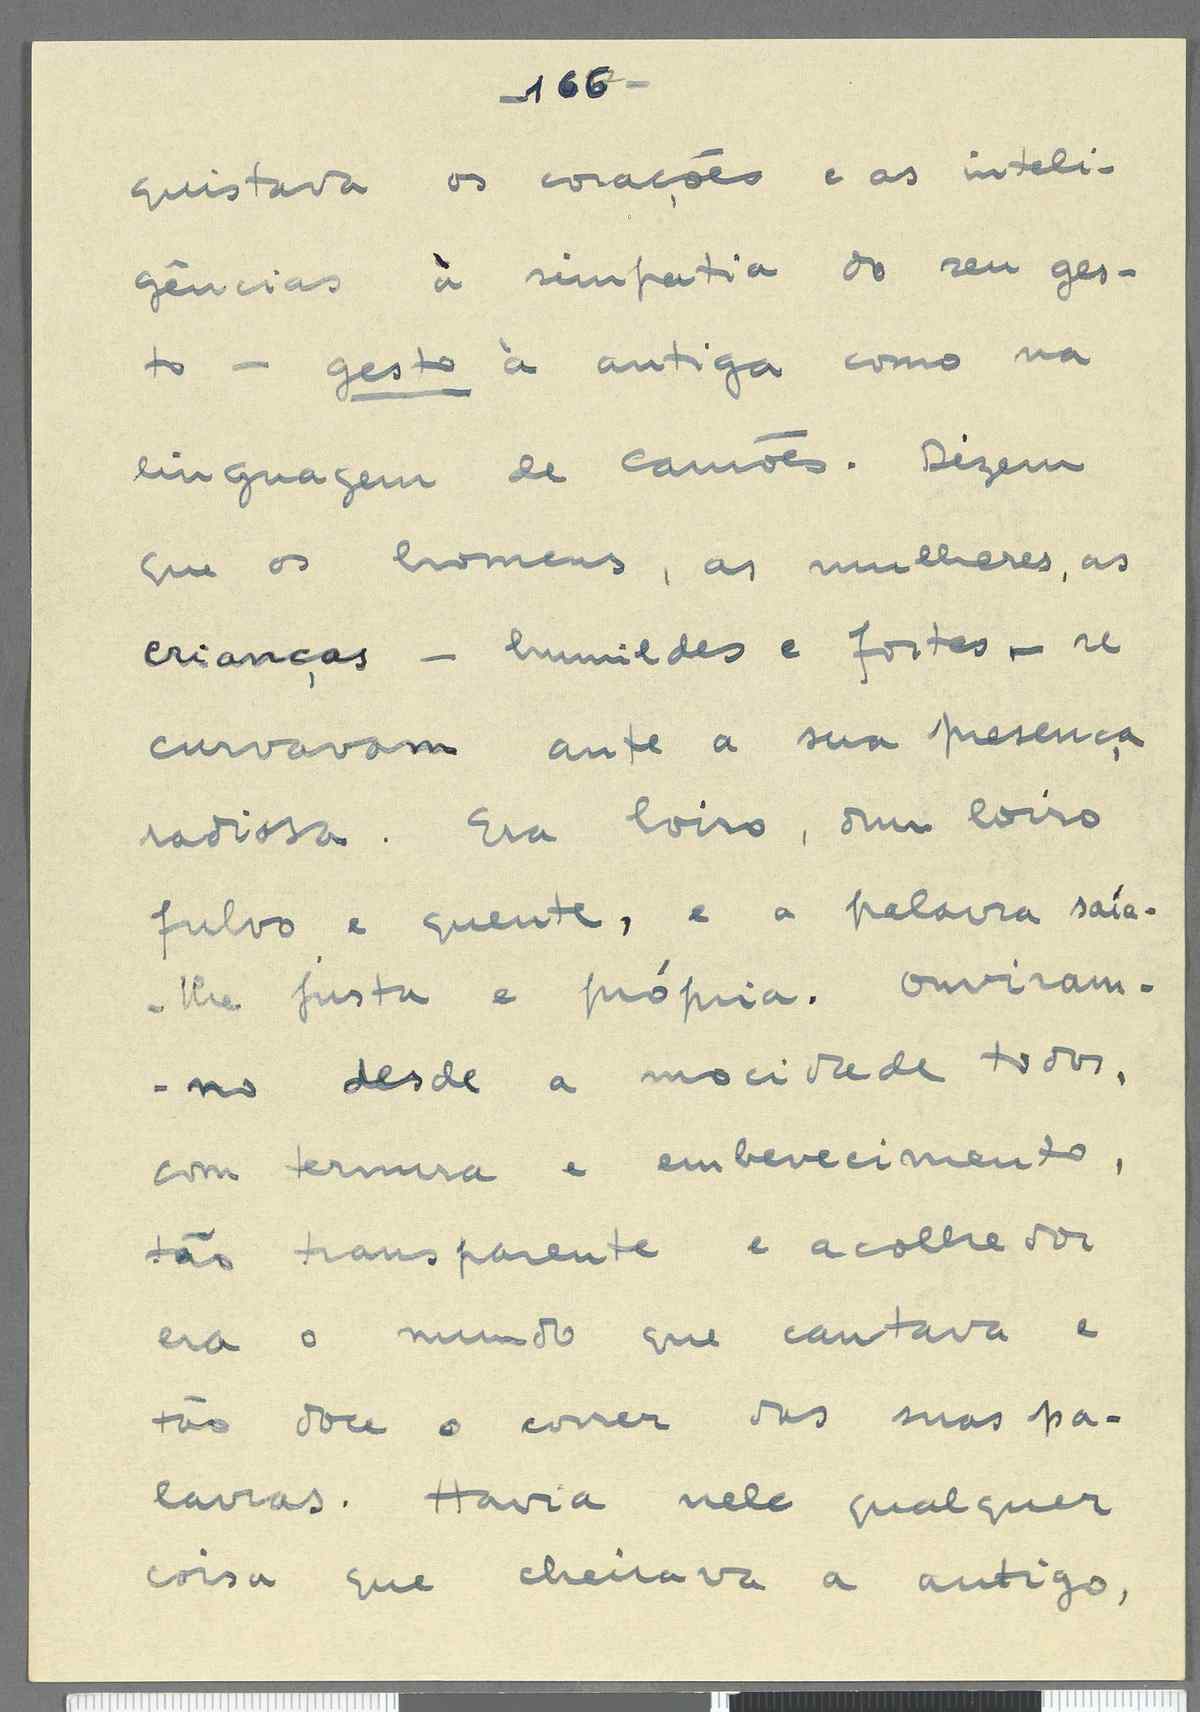 -166-
quistava os corações e as inteli-
gências à simpatia do seu ges-
to - gesto à antiga como na
linguagem de Camões. Dizem
que os homens, as mulheres, as
crianças - humildes e fortes - se
curvavam ante a sua presença
radiosa. Era loiro, dum loiro
fulvo e quente, e a palavra saía-
-lhe justa e própria. Ouviram-
-no desde a mocidade todos,
com ternura e embevecimento,
tão transparente e acolhedor
era o mundo que cantava e
tão doce o correr das suas pa-
lavras. Havia nele qualquer
coisa que cheirava a antigo,